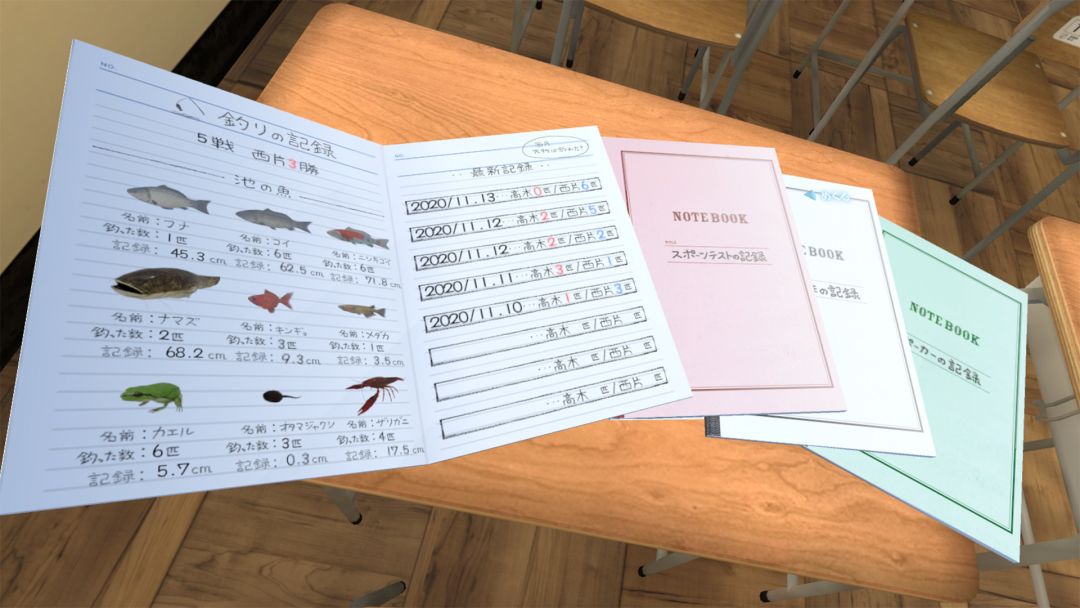 NO.
釣りの記録
5戦 西片3勝
池の魚
名前：フナ
釣った数：1匹
記録： 45.3cm
名前：コイ
釣った数：6匹
記録： 62.5cm
名前：ニシキゴイ
釣った数：6匹
記録： 71.8cm
名前：ナマズ
釣った数：2匹
記録： 68.2cm
名前：キンギョ
釣った数：3匹
記録： 9.3cm
名前：メダカ
釣った数：1匹
記録： 3.5cm
名前：カエル
釣った数：6匹
記録： 5.7cm
名前：オタマジャクシ
釣った数：3匹
記録： 0.3cm
名前：ザリガニ
釣った数：4匹
記録： 17.5cm
NO.
最新記録
2020/11.13…高木0匹/西片6匹
2020/11.12…高木2匹/西片5匹
2020/11.12…高木2匹/西片2匹
2020/11.11…高木3匹/西片1匹
2020/11.10…高木1匹/西片3匹
…高木 匹/西片 匹
…高木 匹/西片 匹
…高木 匹/西片 匹
NOTEBOOK
TITLE
スポーツテストの記録
めくる
BOOK
の記録
NOTEBOOK
カーの記録